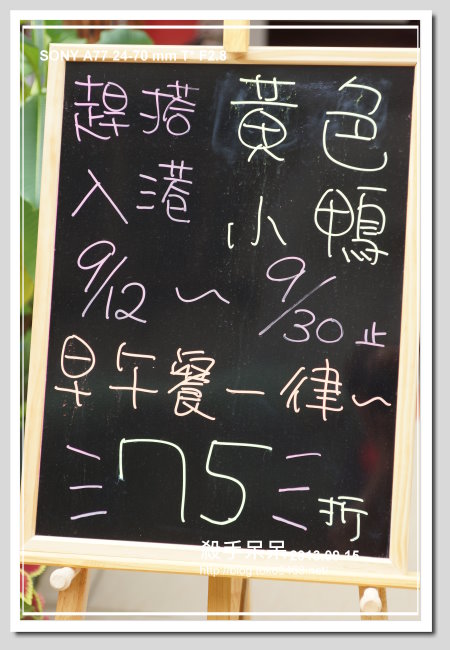 SONY A77 24-70 mm T* F2.8
趕搭 黃色
入港 小鴨
9/12 ~ 9/30止
早午餐一律~
75折
殺手呆呆 2013.09.15